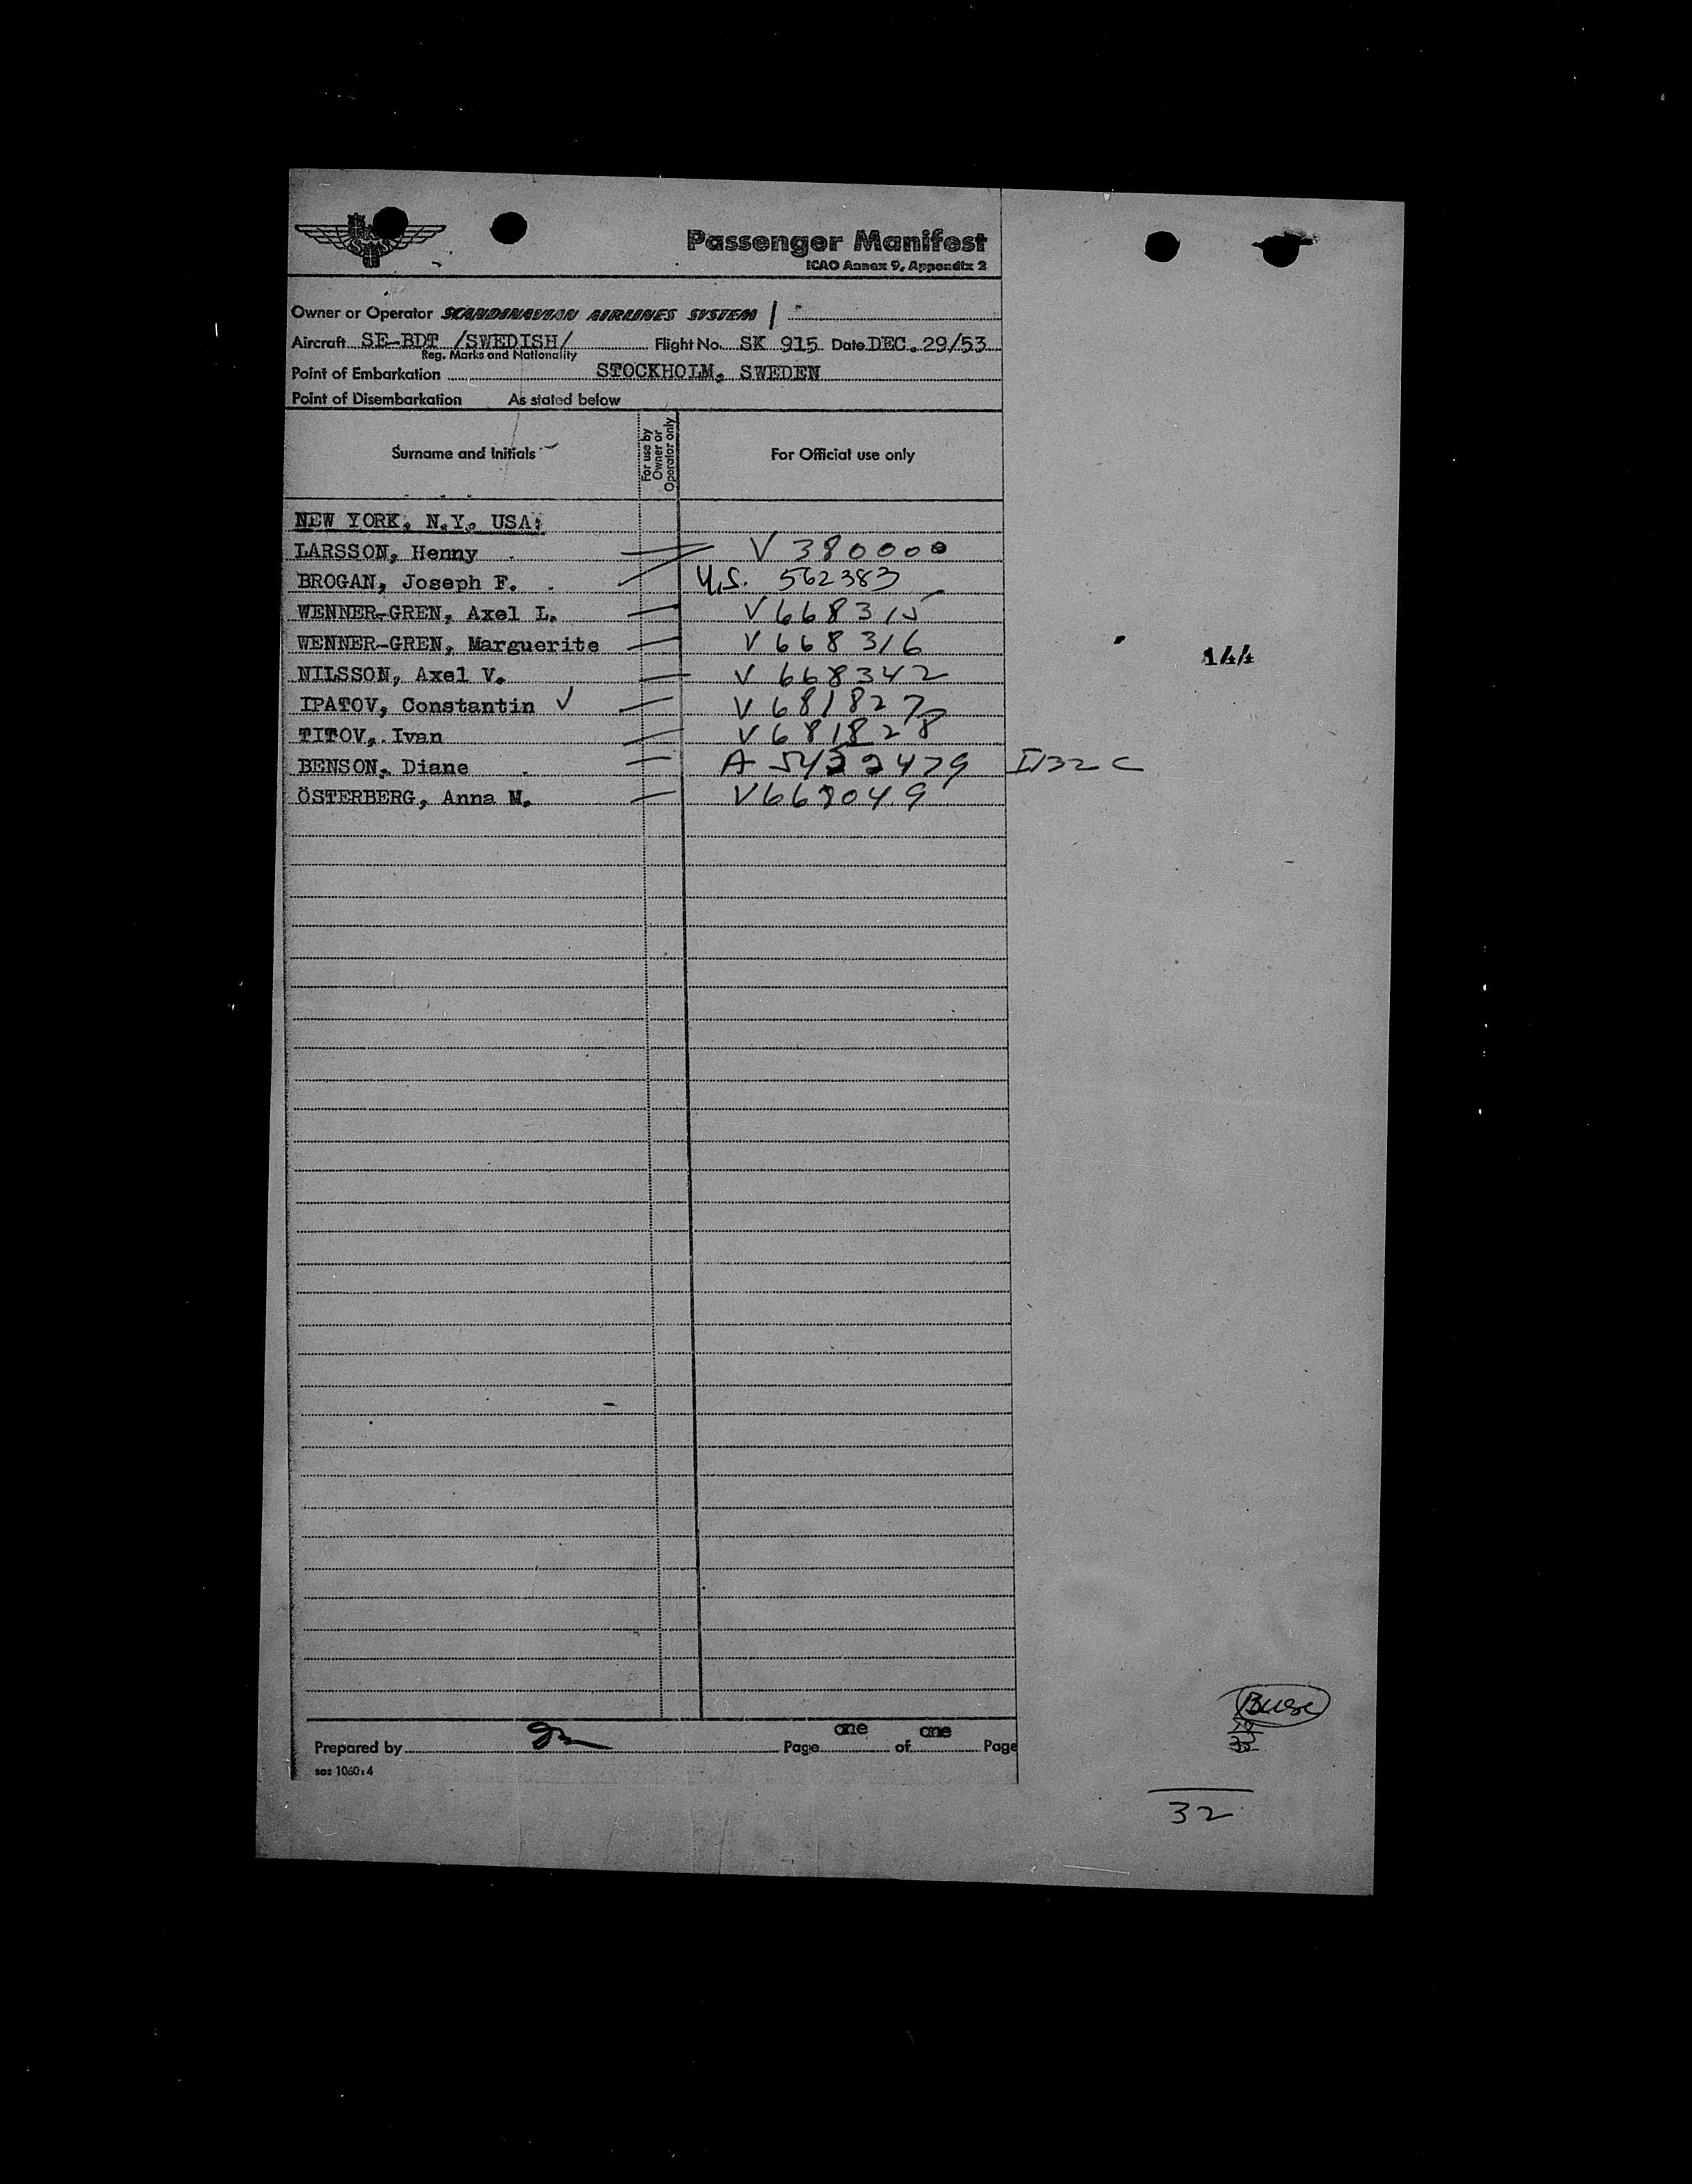 SAS
Passenger Manifest
ICAO Annex 9, Appendix 2
Owner or Operator SCANDINAVIAN AIRLINES SYSTEM /
Aircraft SE-BDT /SWEDISH/ Flight No. SK 915 Date DEC. 29/53
Reg. Marks and Nationality
Point of Embarkation STOCKHOLM, SWEDEN
Point of Disembarkation As stated below
Surname and Initials For use by Owner or Operator only For Official use only
NEW YORK, N.Y. USA:
LARSSON, Henny V 380000
BROGAN, Joseph F. U.S. 562383
WENNER-GREN, Axel L. V668315
WENNER-GREN, Marguerite V 668316
144
NILSSON, Axel V. V 668342
IPATOV, Constantin ✓ V 681827
TITOV, Ivan V 681828
BENSON, Diane A 5422479
ÖSTERBERG, Anna M. V668049
Prepared by Page one of one Page
sas 1060:4
32